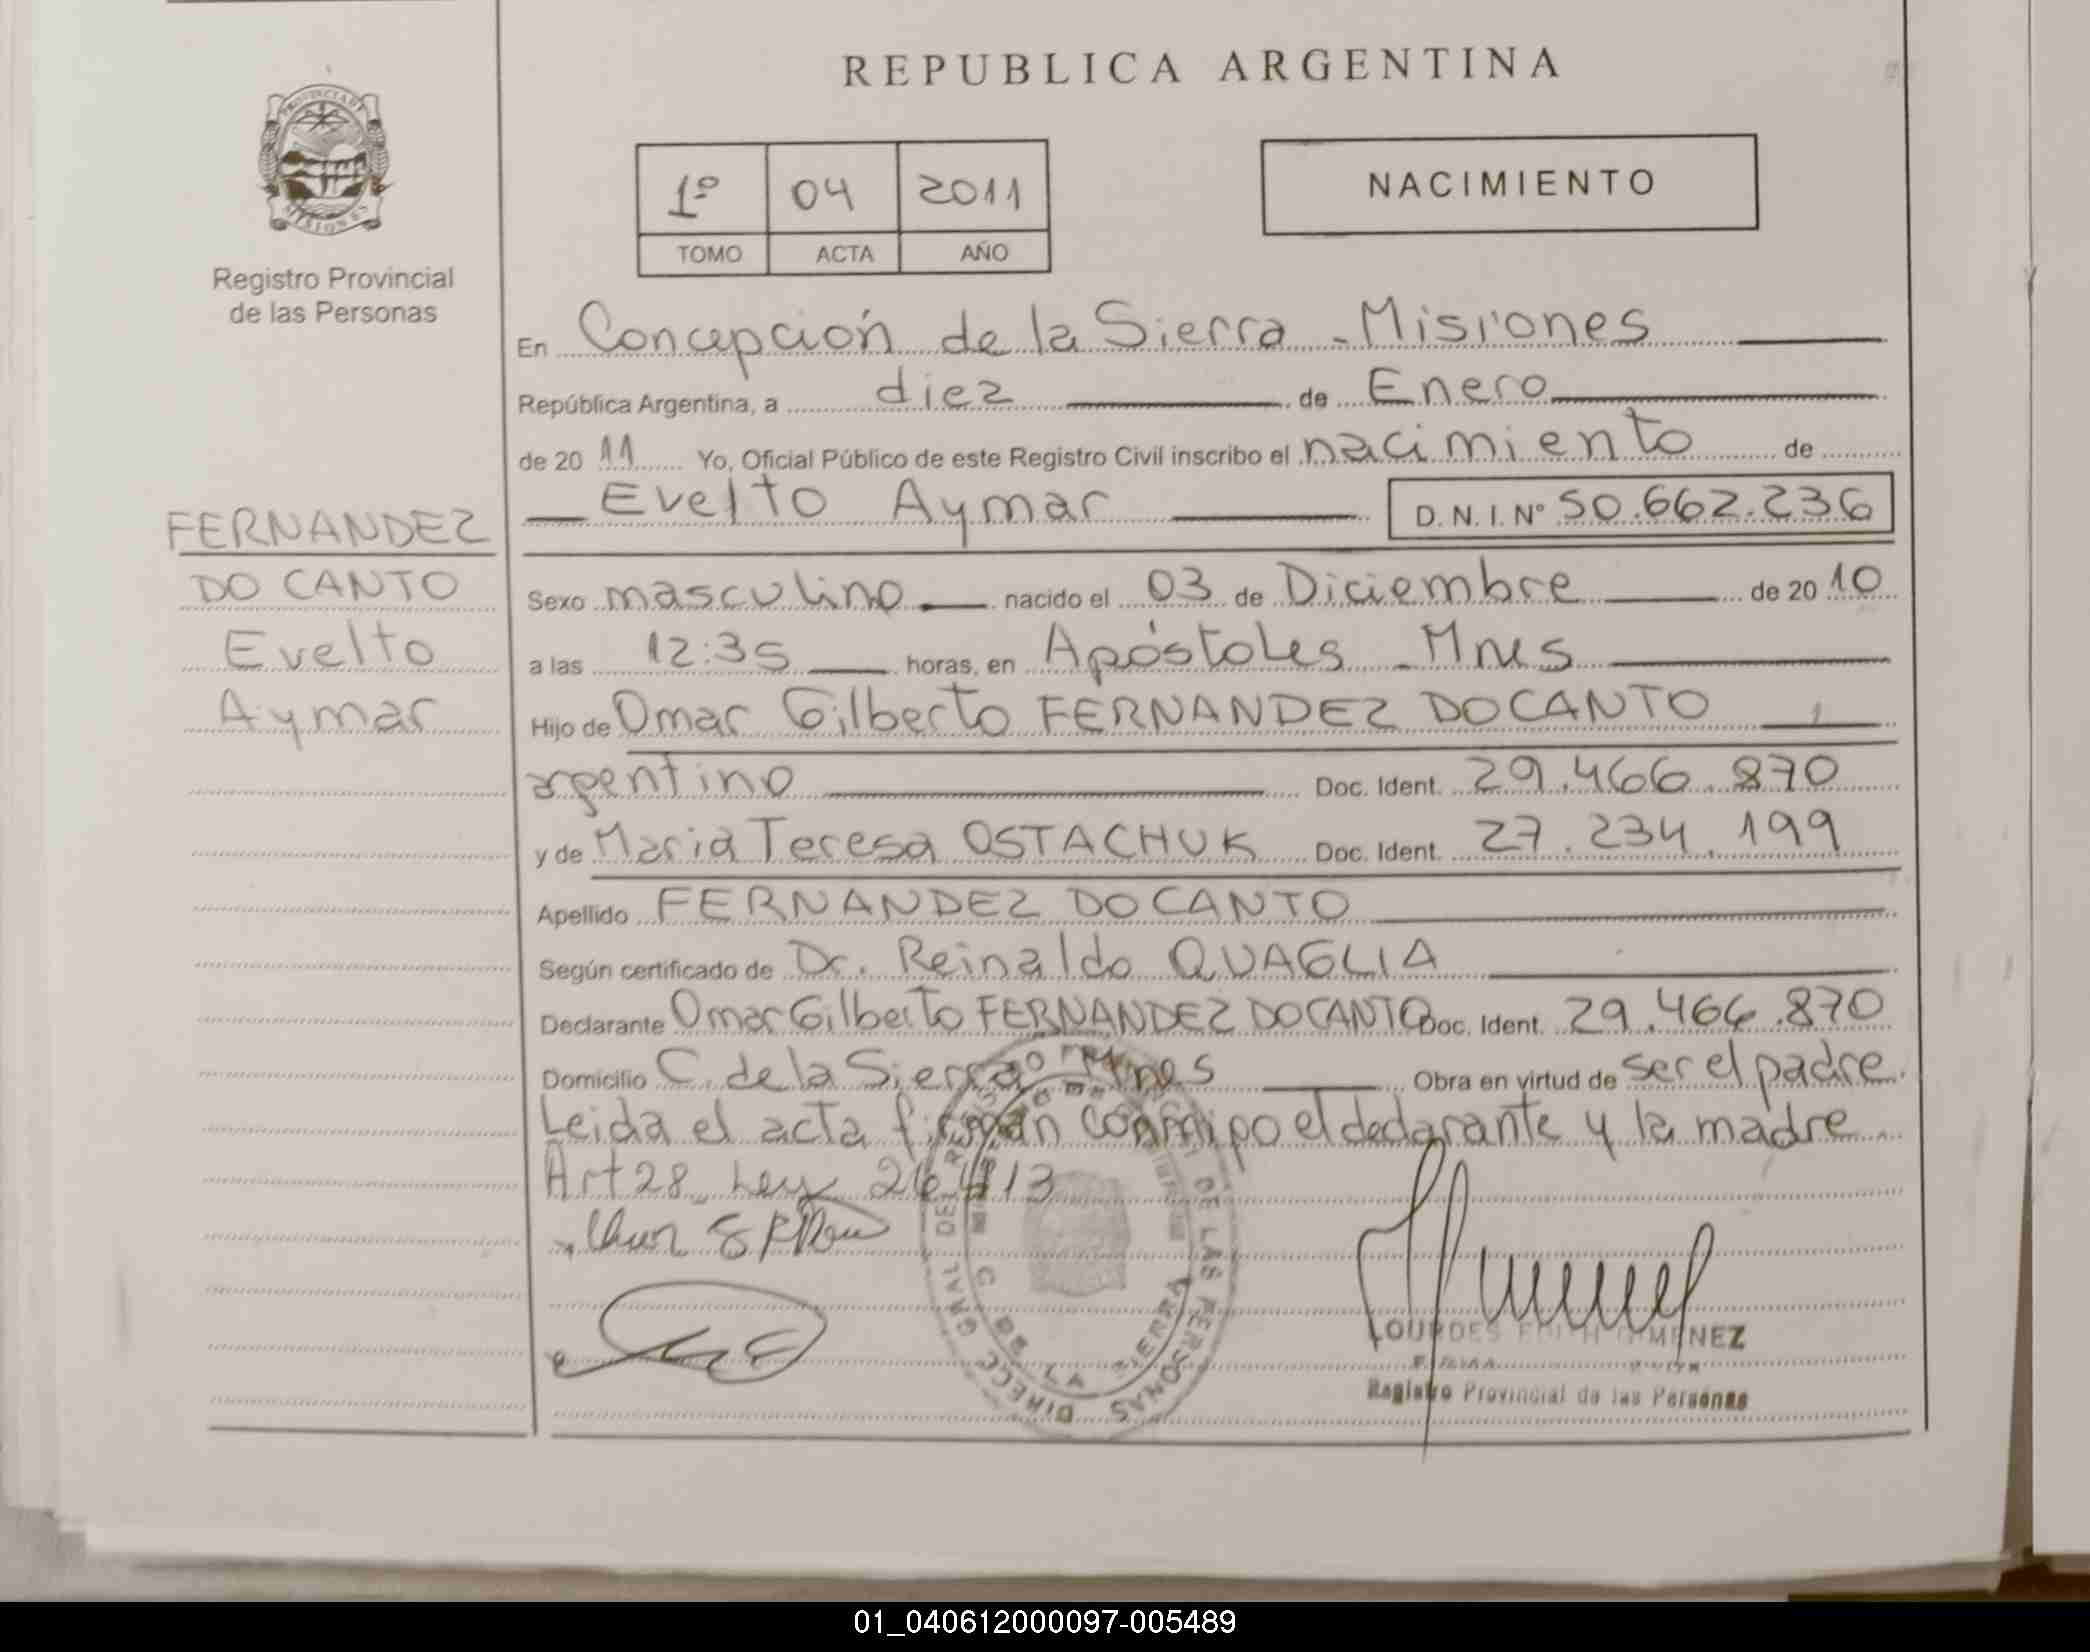 REPUBLICA ARGENTINA
PROVINCIA DE MISIONES
Registro Provincial
de las Personas
1º 04 2011
TOMO ACTA AÑO
NACIMIENTO
En Concepción de la Sierra - Misiones
República Argentina, a diez de Enero
de 20 11 Yo, Oficial Público de este Registro Civil inscribo el nacimiento de
Evelto Aymar D.N.I. Nº 50.662.236
FERNANDEZ
DO CANTO
Evelto
Aymar
Sexo masculino nacido el 03 de Diciembre de 20 10
a las 12:35 horas, en Apóstoles - Mnes
Hijo de Omar Gilberto FERNANDEZ DO CANTO
argentino Doc. Ident. 29.466.870
y de Maria Teresa OSTACHUK Doc. Ident. 27.234.199
Apellido FERNANDEZ DO CANTO
Según certificado de Dr. Reinaldo QUAGLIA
Declarante Omar Gilberto FERNANDEZ DO CANTO Doc. Ident. 29.466.870
Domicilio C. de la Sierra Mnes Obra en virtud de ser el padre.
Leida el acta firman conmigo el declarante y la madre
Art 28 Ley 26413
DIRECC GRAL DEL REGISTRO DE LAS PERSONAS
C DE LA SIERRA
LOURDES EDITH GIMENEZ
Registro Provincial de las Personas
01_040612000097-005489